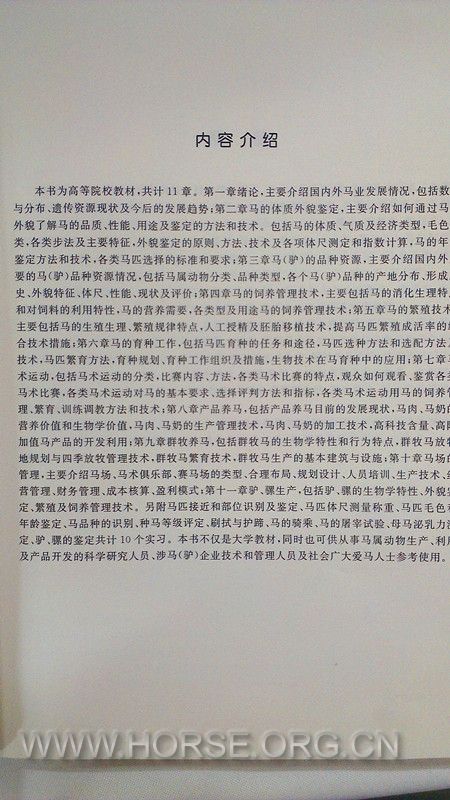 内容介绍
本书为高等院校教材,共计 11 章。第一章绪论,主要介绍国内外马业发展情况,包括数
与分布、遗传资源现状及今后的发展趋势;第二章马的体质外貌鉴定,主要介绍如何通过马
外貌了解马的品质、性能、用途及鉴定的方法和技术。包括马的体质、气质及经济类型,毛色
类,各类步法及主要特征,外貌鉴定的原则、方法、技术及各项体尺测定和指数计算,马的年
鉴定方法和技术,各类马匹选择的标准和要求;第三章马(驴)的品种资源,主要介绍国内外
要的马(驴)品种资源情况,包括马属动物分类、品种类型、各个马(驴)品种的产地分布、形成
史、外貌特征、体尺、性能、现状及评价;第四章马的饲养管理技术,主要包括马的消化生理特
和对饲料的利用特性,马的营养需要,各类型及用途马的饲养管理技术;第五章马的繁殖技术
主要包括马的生殖生理、繁殖规律特点,人工授精及胚胎移植技术,提高马匹繁殖成活率的综
合技术措施;第六章马的育种工作,包括马匹育种的任务和途径,马匹选种方法和选配方法
技术,马匹繁育方法,育种规划、育种工作组织及措施,生物技术在马育种中的应用;第七章马
术运动,包括马术运动的分类,比赛内容、方法,各类马术比赛的特点,观众如何观看、鉴赏各
马术比赛,各类马术运动对马的基本要求、选择评判方法和指标,各类马术运动用马的饲
理、繁育、训练调教方法和技术;第八章产品养马,包括产品养马目前的发展现状,马肉、马奶的
营养价值和生物学价值,马肉、马奶的生产管理技术,马肉、马奶的加工技术,高科技含量、高附
加值马产品的开发利用;第九章群牧养马,包括群牧马的生物学特性和行为特点,群牧马放牧
地规划与四季放牧管理技术,群牧马繁育技术,群牧马生产的基本建筑与设施;第十章马场
管理,主要介绍马场、马术俱乐部、赛马场的类型、合理布局、规划设计、人员培训、生产技术、经
营管理、财务管理、成本核算、盈利模式;第十一章驴、骡生产,包括驴、骡的生物学特性、外貌鉴
定、繁殖及饲养管理技术。另附马匹接近和部位识别及鉴定、马匹体尺测量称重、马匹毛色
年龄鉴定、马品种的识别、种马等级评定、刷拭与护蹄、马的骑乘、马的屠宰试验、母马泌乳力测
定、驴、骡的鉴定共计 10 个实习。本书不仅是大学教材,同时也可供从事马属动物生产、利用
及产品开发的科学研究人员、涉马(驴)企业技术和管理人员及社会广大爱马人士参考使用。
WWW.HORSE.ORG.CN